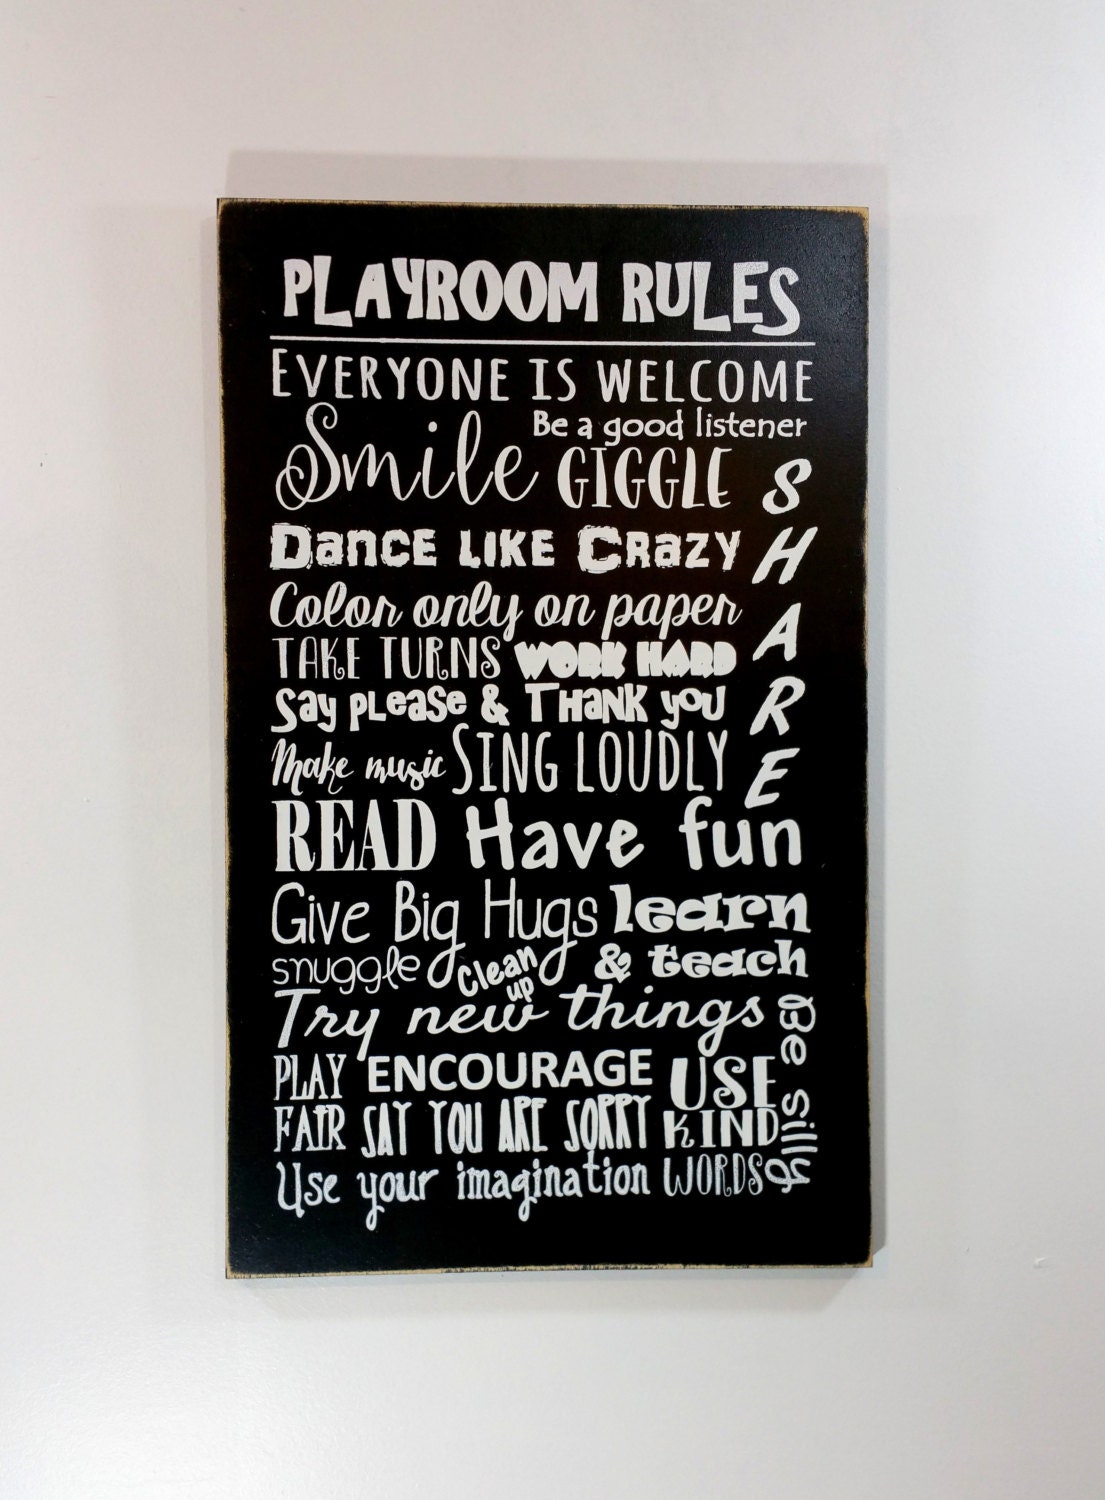 PLAYROOM RULES
EVERYONE IS WELCOME
Smile
Be a good listener
GIGGLE
SHARE
DANCE LIKE CRAZY
Color only on paper
TAKE TURNS WORK HARD
Say please & Thank you
Make music SING LOUDLY
READ Have fun
Give Big Hugs learn
& teach
snuggle
Clean
up
Try new things
Be silly
PLAY
FAIR
ENCOURAGE
SAY YOU ARE SORRY
USE
KIND
WORDS
Use your imagination